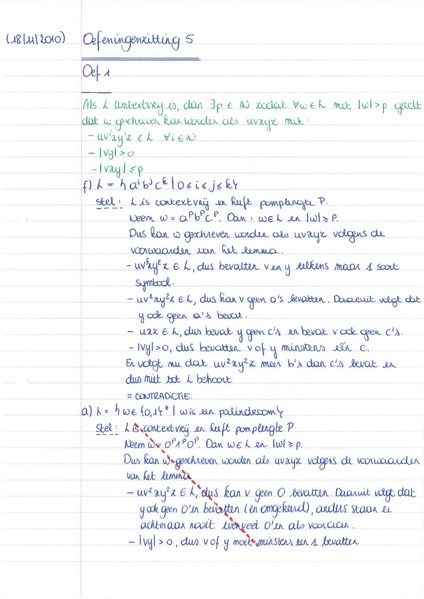 (18/11/2010) Oefeningenzitting 5
Oef 1
Als L contextvrij is, dan ∃p ∈ ℕ zodat ∀w∈L met |w|>p geldt
dat w geschreven kan worden als uvxyz met:
- uvⁱxyⁱz ∈ L ∀i∈ℕ
- |vy|>0
- |vxy|≤p
f) L = { aⁱbʲcᵏ | 0≤i≤j≤k}
Stel: L is contextvrij en heeft pomplengte P.
Neem w = aᵖbᵖcᵖ. Dan: w∈L en |w|≥p.
Dus kan w geschreven worden als uvxyz volgens de
voorwaarden van het lemma.
- uv²xy²z ∈ L, dus bevatten v en y telkens maar 1 soort
symbool.
- uv²xy²z ∈ L, dus kan v geen a's bevatten. Daaruit volgt dat
y ook geen a's bevat.
- uxz ∈ L, dus bevat y geen c's en bevat v ook geen c's.
- |vy|>0, dus bevatten v of y minstens één c.
Er volgt nu dat uv²xy²z meer b's dan c's bevat en
dus niet tot L behoort
= CONTRADICTIE.
a) L = { w∈{0,1}* | w is een palindroom}
Stel: L is contextvrij en heeft pomplengte P
Neem w = 0ᵖ1ᵖ0ᵖ. Dan w∈L en |w|≥p.
Dus kan w geschreven worden als uvxyz volgens de voorwaarden
van het lemma
- uv²xy²z ∈ L, dus kan v geen 0 bevatten. Daaruit volgt dat
y ook geen 0'en bevatten (en omgekeerd), anders staan er
achteraan nooit evenveel 0'en als vooraan.
- |vy|>0, dus v of y moet minstens een 1 bevatten